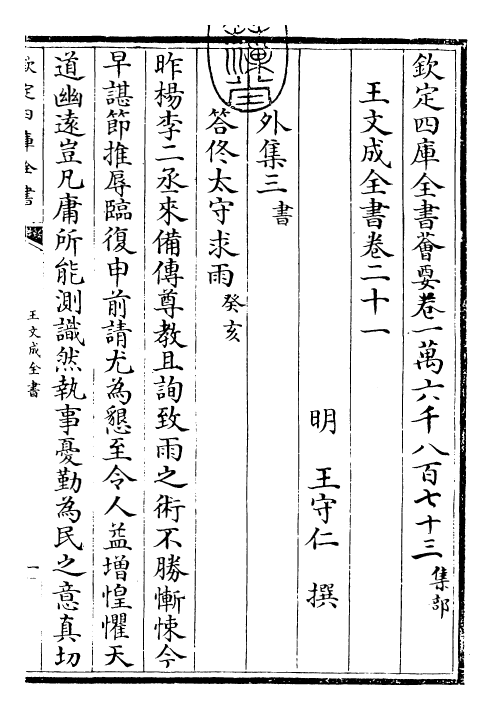 欽定四庫全書薈要卷一萬六千八百七十三集部
王文成全書卷二十一
明 王守仁 撰
外集三書
答佟太守求雨癸亥
昨楊李二丞來備傳尊教且詢致雨之術不勝慚悚今
早諶節推辱臨復申前請尤為懇至令人益增惶懼天
道幽遠豈凡庸所能測識然執事憂勤為民之意真切
欽定四庫全書
王文成全書
一